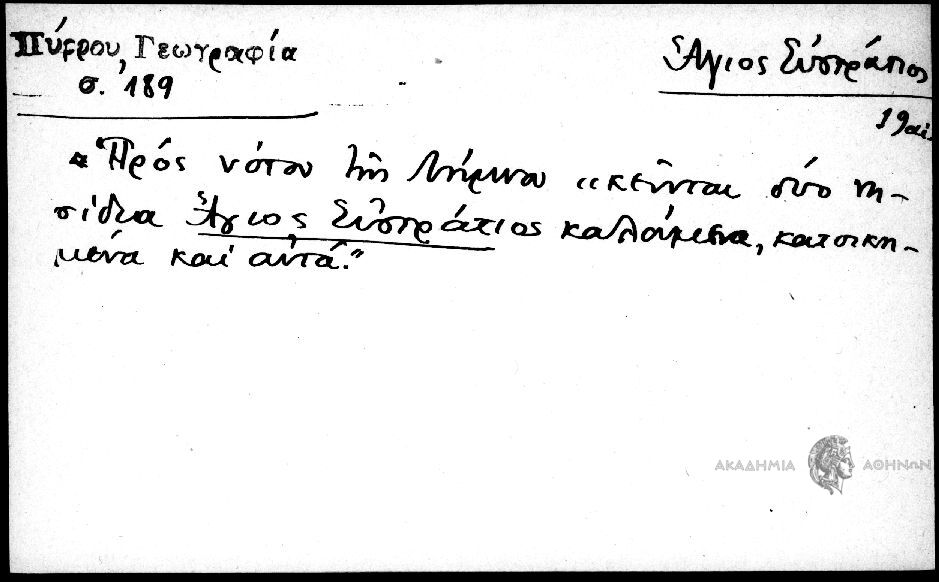 Πύρρου, Γεωγραφία
σ. 189
Ἅγιος Εὐστράτιος
19 αἰ.
Πρὸς νότου τῆς Λήμνου "κεῖνται δύο νη-
σίδια Ἅγιος Εὐστράτιος καλούμενα, κατοικη-
μένα καὶ αὐτά."
ΑΚΑΔΗΜΙΑ ΑΘΗΝΩΝ